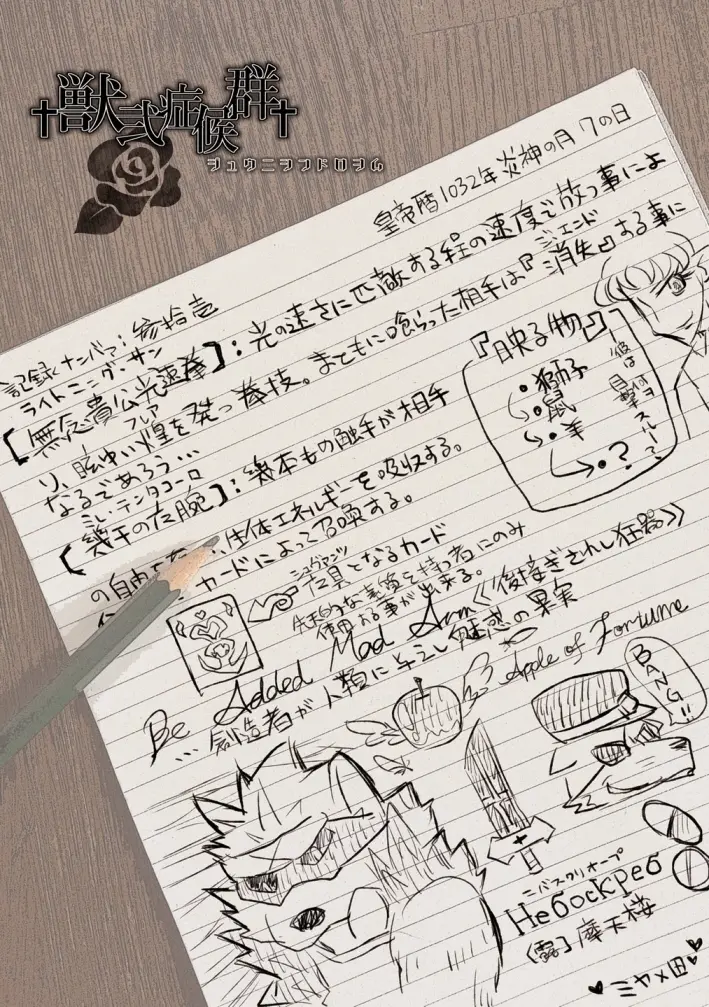 †獣弐症候群†
ジュウニシンドロウム
皇帝暦1032年 炎神の月 7の日
記録ナンバァ:参拾壱
ライトニング・サン
【無念貴公光速拳】:光の速さに匹敵する程の速度で放つ事によ
フレア
ジ・エンド
り、眩ゆい煌を発つ拳技。まともに喰らった相手は『消失』する事に
なるであろう…
ミレ・テンタコーロ
【幾千の左腕】:幾本もの触手が相手
の自由を 体エネルギーを吸収する。
カードによって召喚する。
『映る物』
・獅子
・鼠
・羊
・?
彼は
何ヲ
スルー?
左具となるカード
先天的な素質を持つ者にのみ
使用する事が出来る。
Be Added Mad Arm《後接ぎされし狂器》
…創造者が人類に与えし魅惑の果実
Apple of Fortune
BANG!!
Небоскреб
〔露〕摩天楼
♥ミヤ×田♥